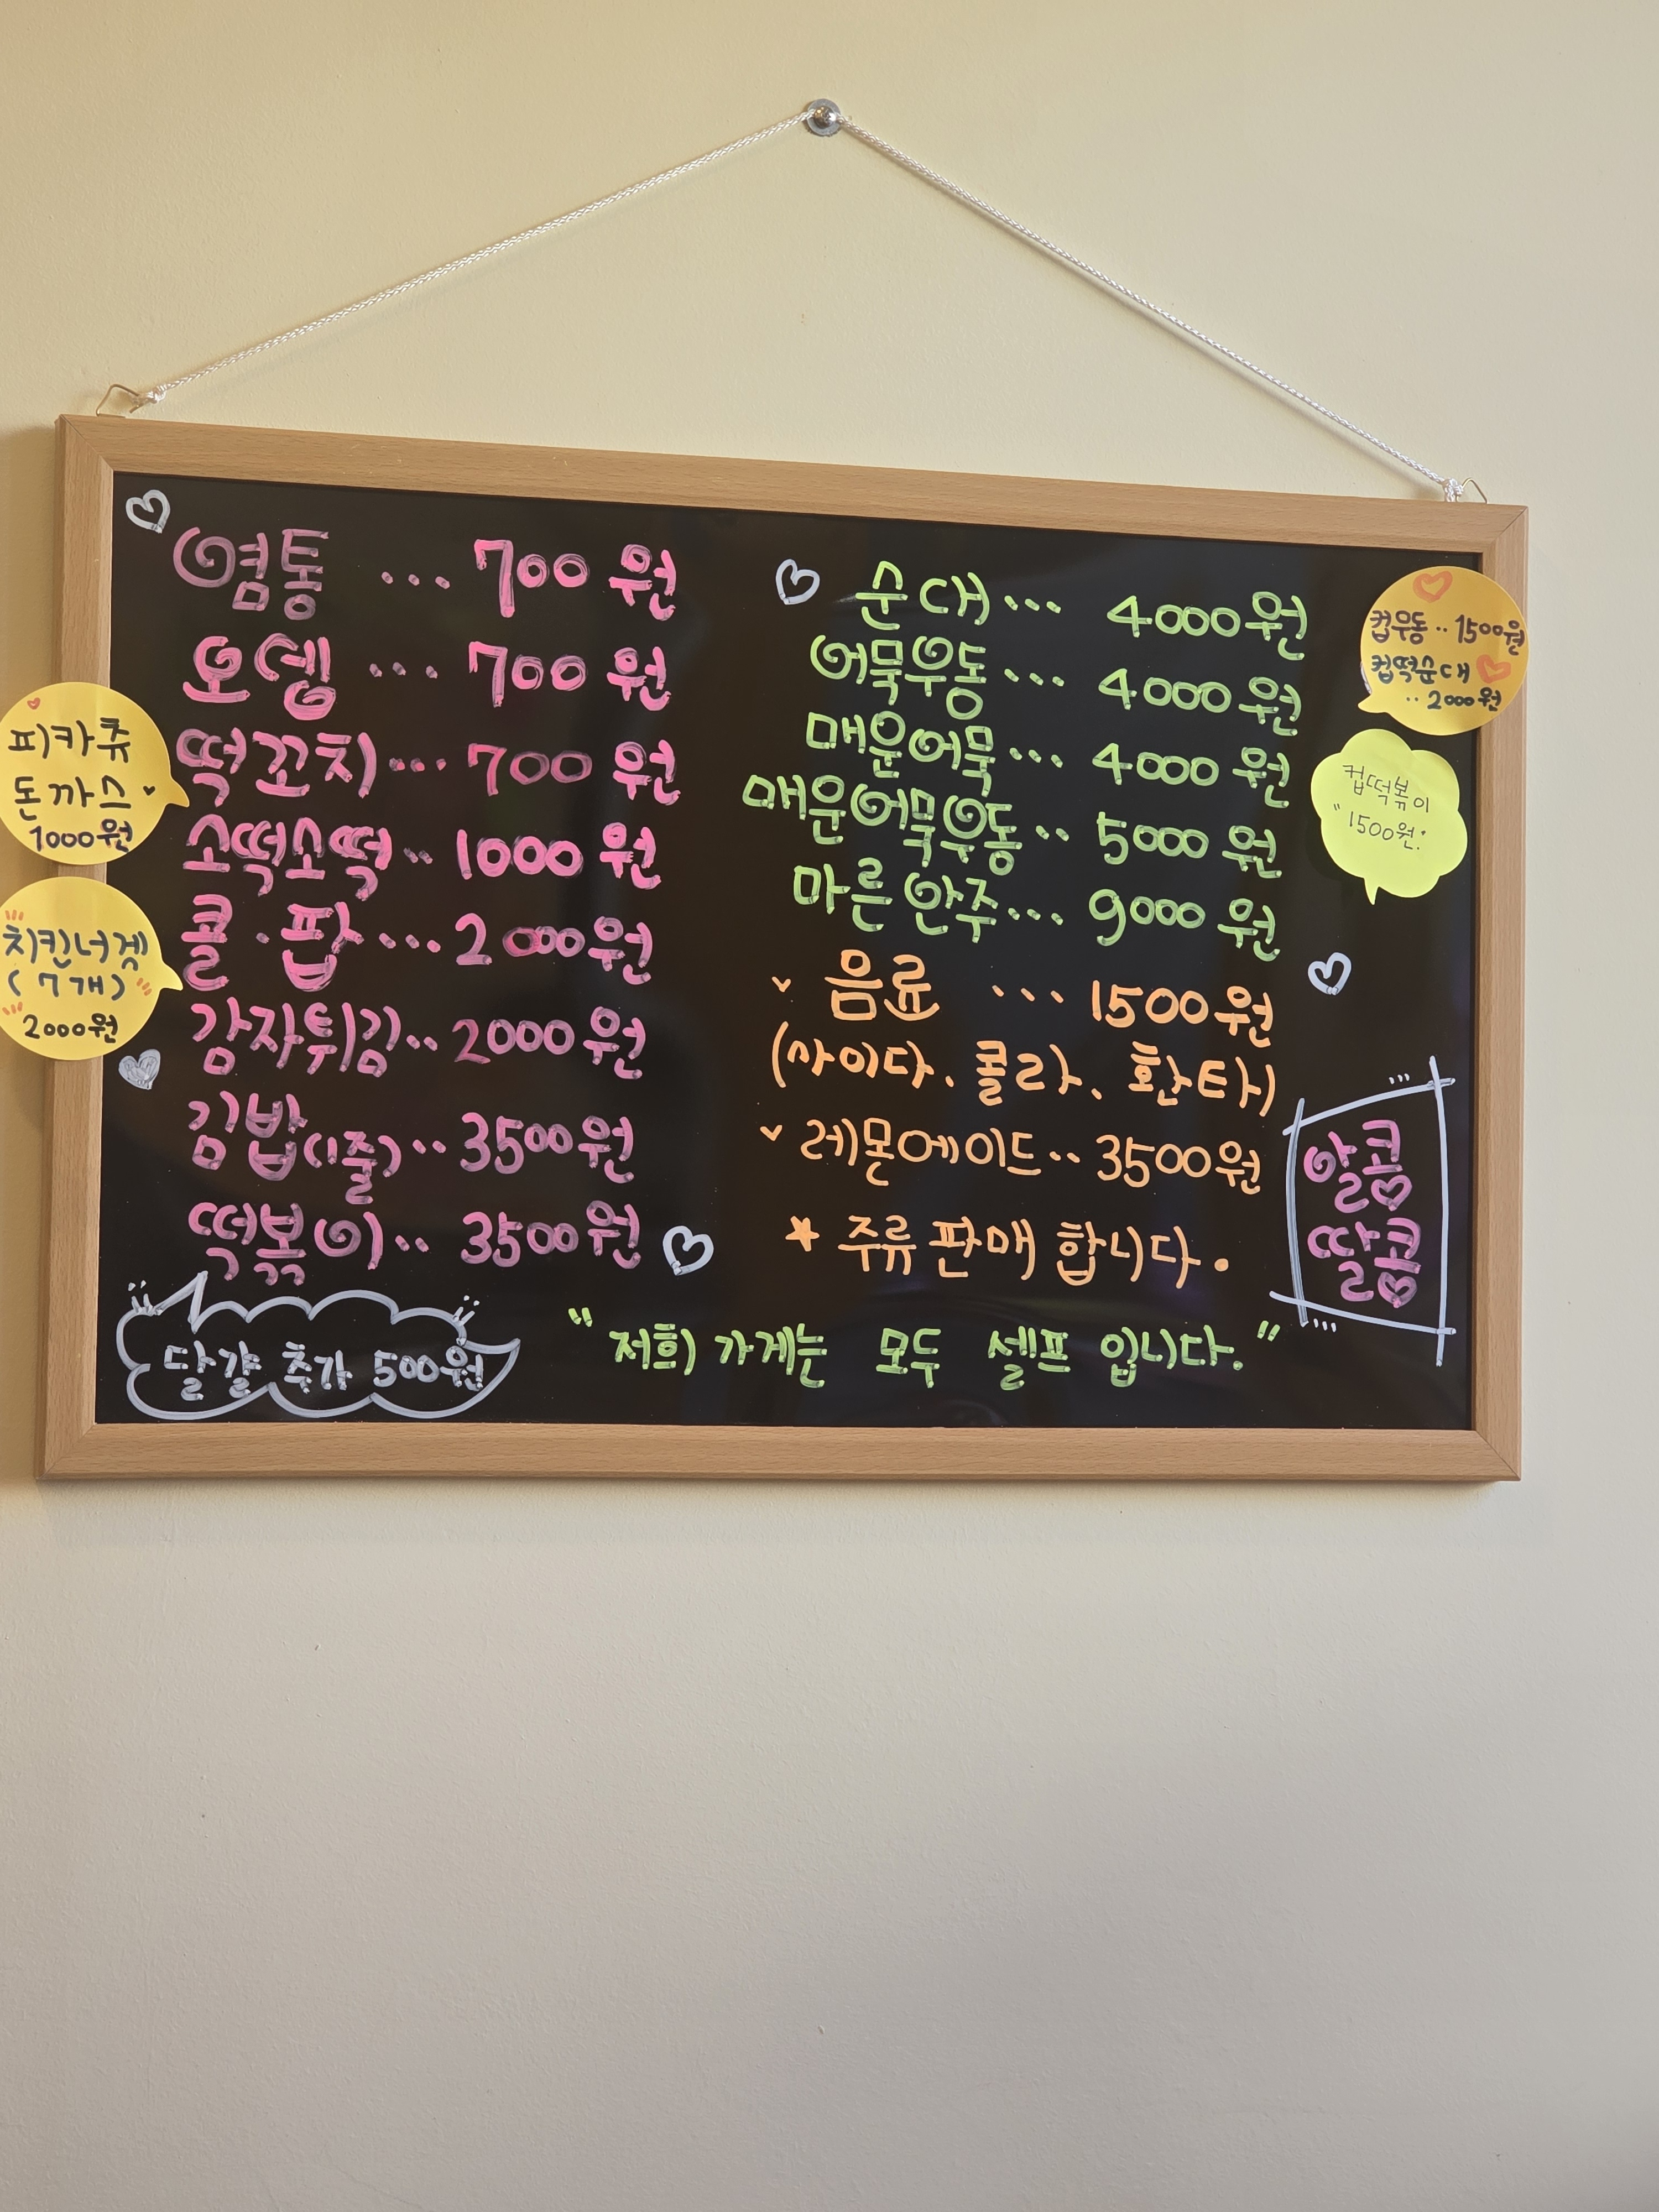 염통 ... 700원
오뎅 ... 700원
떡꼬치... 700원
소떡소떡.. 1000원
콜.팝... 2000원
감자튀김.. 2000원
김밥(1줄).. 3500원
떡볶이.. 3500원
달걀 추가 500원
피카츄
돈까스
1000원
치킨너겟
(7개)
2000원
순대... 4000원
어묵우동... 4000원
매운어묵... 4000원
매운어묵우동.. 5000원
마른안주... 9000원
음료 ... 1500원
(사이다. 콜라. 환타)
레몬에이드.. 3500원
* 주류 판매 합니다.
"저희 가게는 모두 셀프 입니다."
컵우동.. 1500원
컵떡순대
.. 2000원
컵떡볶이
"1500원.
알콤
딸콤